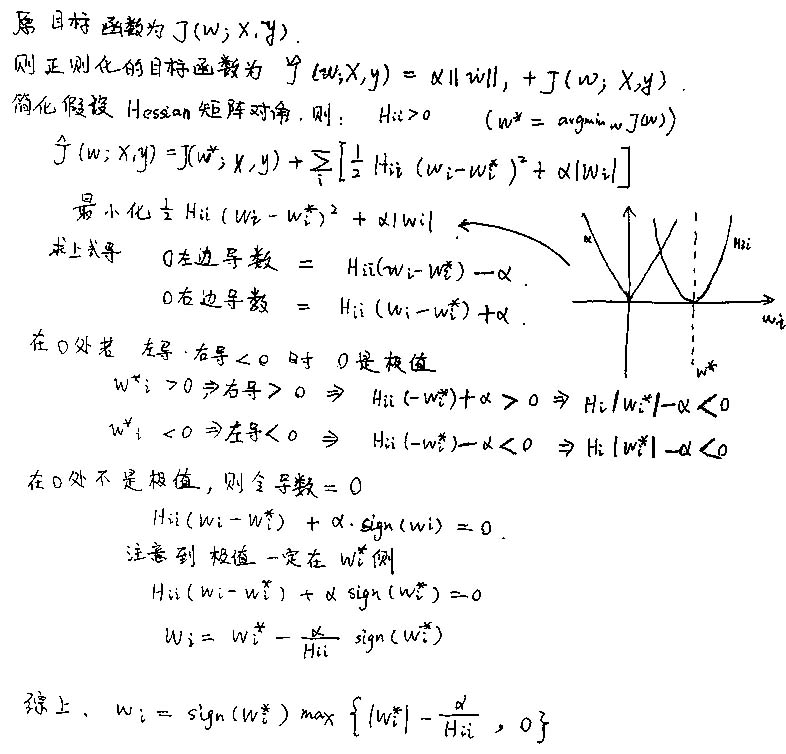 原目标函数为 J(w; X, y).
则正则化的目标函数为 Ĵ(w; X, y) = α||w||₁ + J(w; X, y).
简化假设 Hessian 矩阵对角, 则: Hii > 0 (w* = argmin_w J(w))
Ĵ(w; X, y) = J(w*; X, y) + Σ_i [½ Hii (wi - wi*)² + α|wi|]
最小化 ½ Hii (wi - wi*)² + α|wi|
求上式导 0左边导数 = Hii(wi - wi*) - α.
0右边导数 = Hii(wi - wi*) + α.
α
Hii
wi
w*
在0处若 左导·右导<0 时 0是极值
w*i > 0 ⇒ 右导 > 0 ⇒ Hii(-wi*) + α > 0 ⇒ Hi|wi*| - α < 0
w*i < 0 ⇒ 左导 < 0 ⇒ Hii(-wi*) - α < 0 ⇒ Hi|wi*| - α < 0
在0处不是极值, 则令导数 = 0
Hii(wi - wi*) + α·sign(wi) = 0.
注意到 极值一定在 wi* 侧
Hii(wi - wi*) + α sign(wi*) = 0
wi = wi* - α/Hii sign(wi*)
综上、 wi = sign(wi*) max {|wi*| - α/Hii , 0}